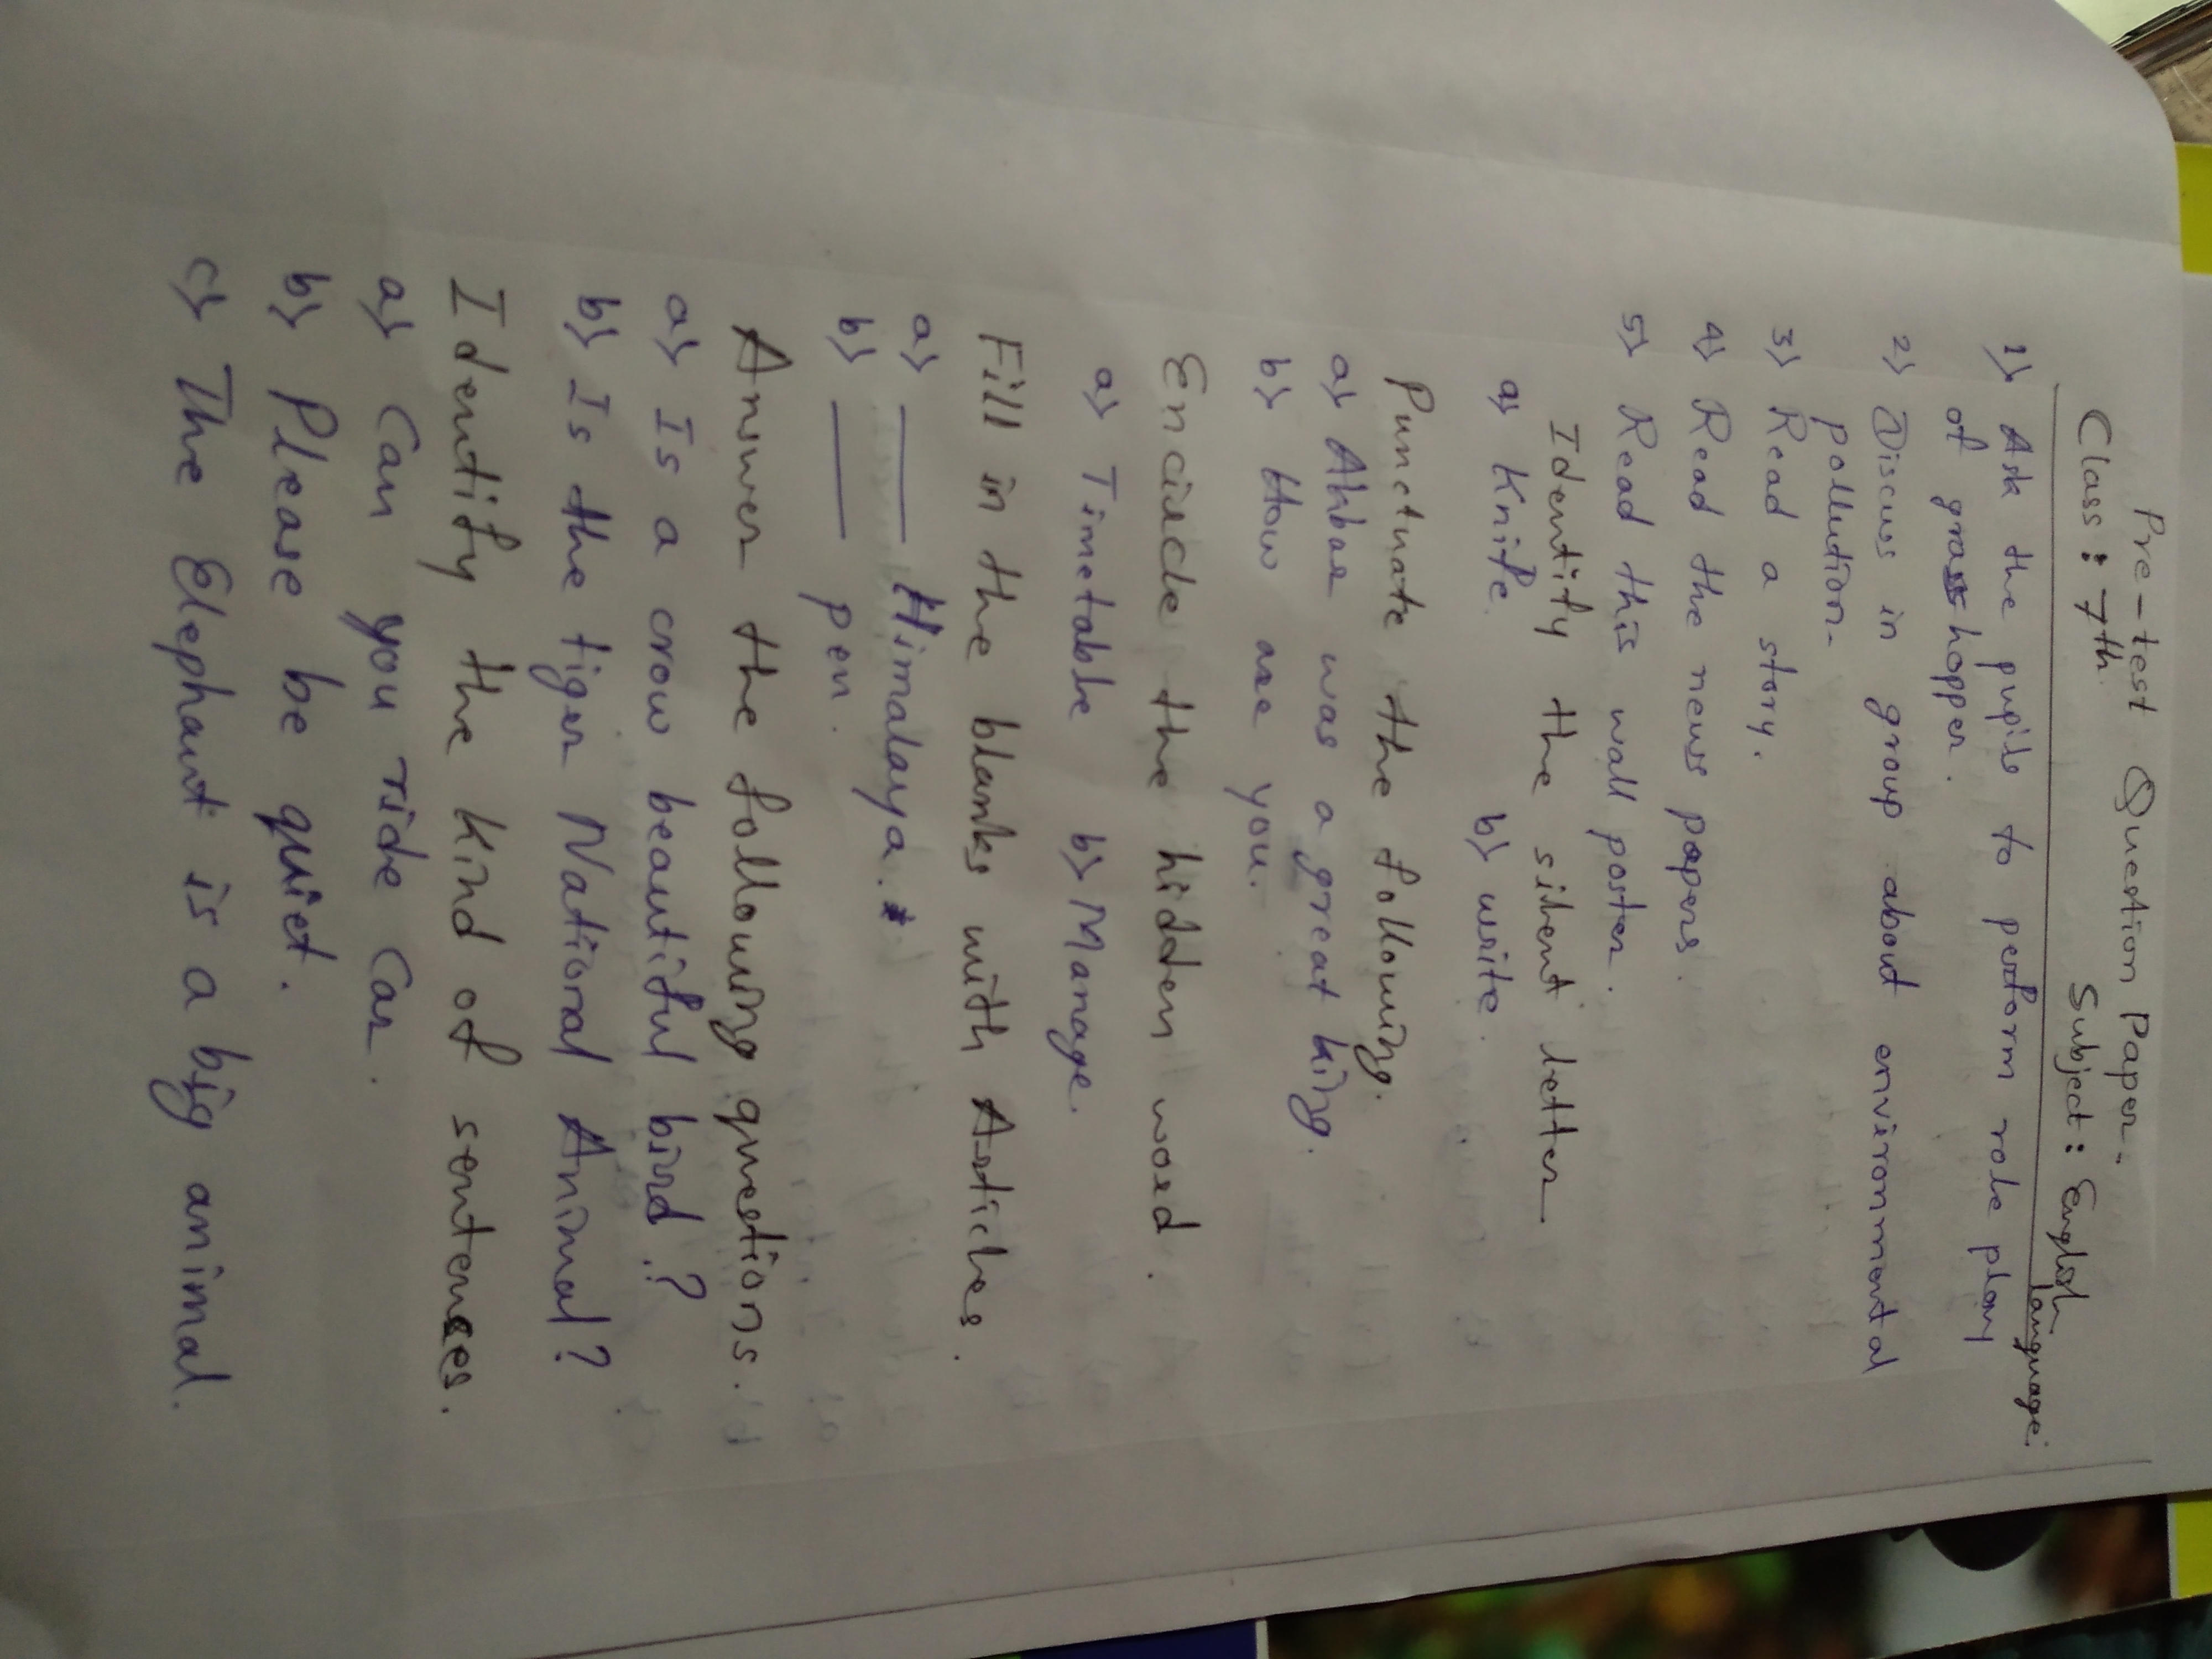 Pre-test Question Paper-
Class: 7th. Subject: English language:
1) Ask the pupils to perform role play
of grasshopper.
2) Discuss in group about environmental
pollution-
3) Read a story.
4) Read the news papers.
5) Read this wall poster.
Identify the silent letter
a) Knife. b) write.
Punctuate the following.
a) Akbar was a great king.
b) How are you.
Encircle the hidden word.
a) Timetable b) Manage.
Fill in the blanks with Articles.
a) ____ Himalaya.
b) ____ pen.
Answer the following questions.
a) Is a crow beautiful bird?
b) Is the tiger National Animal?
Identify the kind of sentences.
a) Can you ride Car.
b) Please be quiet.
c) The Elephant is a big animal.